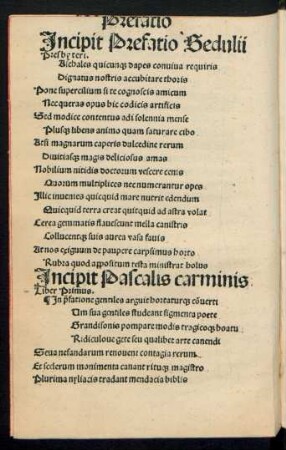 Prefatio
Incipit Prefatio Sedulii
Presbyteri.
Aschales quicunq dapes conuiua requiris
Dignatus nostris accubitare thoris
Pone supercilium si te cognoscis amicum
Nec queras opus hic codicis artificis
Sed modice contentus adi solennia mense
Plusq libens animo quam saturare cibo
At si magnarum caperis dulcedine rerum
Diuitiasq magis deliciosus amas
Nobilium nitidis doctorum vescere cenis
Quorum multiplices nec numerantur opes
Illic inuenies quicquid mare nutrit edendum
Quicquid terra creat quicquid ad astra volat
Cerea gemmatis flauescunt mella canistris
Collucentq suis aurea vasa fauis
At nos exiguum de paupere carpsimus horto
Rubra quod appositum testa ministrat holus
Incipit Pascalis carminis
Liber Primus.
¶ In pfatione gentiles arguit hortaturq cõuerti
Um sua gentiles studeant figmenta poete
Grandisonis pompare modis tragicoq boatu
Ridiculoue gete seu qualibet arte canendi
Seua nefandarum renouent contagia rerum
Et scelerum monimenta canant rituq magistro
Plurima nyliacis tradant mendacia biblis